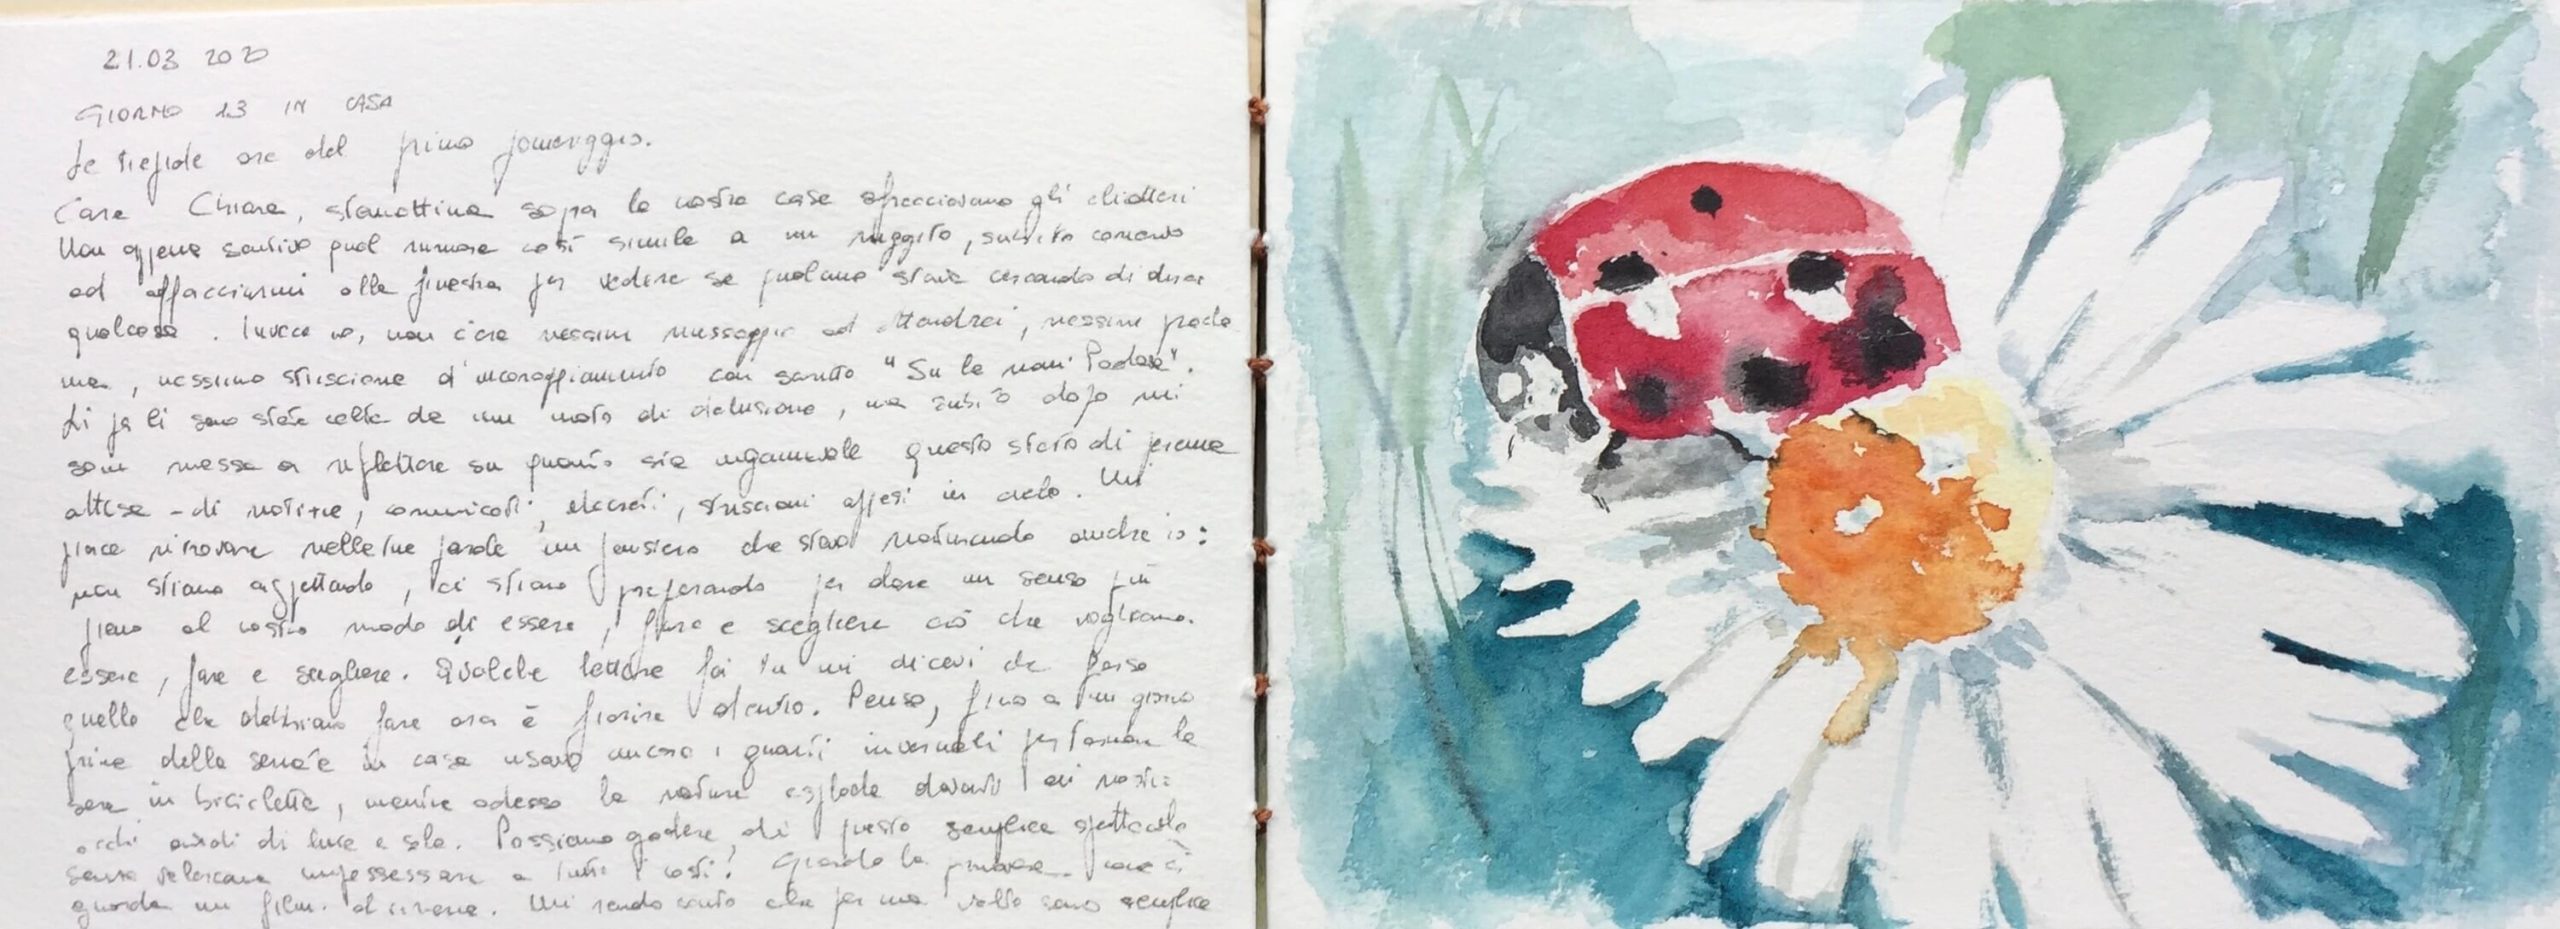 21.03 2020
GIORNO 13 IN CASA
Le tiepide ore del primo pomeriggio.
Cara Chiara, stamattina sopra le nostre case sfrecciavano gli elicotteri
Non appena sentivo quel rumore così simile a un ruggito, subito correvo
ad affacciarmi alla finestra per vedere se qualcuno stava cercando di dirci
qualcosa. Invece no, non c'era nessun messaggio ad attenderci, nessun procla
ma, nessuno striscione d'incoraggiamento con scritto "Su le mani Padova".
Lì per lì sono stata colta da un moto di delusione, ma subito dopo mi
sono messa a riflettere su quanto sia ingannevole questo stato di perenne
attesa - di notizie, comunicati, decreti, striscioni appesi in cielo. Mi
piace ritrovare nelle tue parole un pensiero che stavo maturando anche io:
non stiamo aspettando, ci stiamo preparando per dare un senso più
pieno al nostro modo di essere, fare e scegliere ciò che vogliamo
essere, fare e scegliere. Qualche lettera fa tu mi dicevi che forse
quello che dobbiamo fare ora è fiorire dentro. Penso, fino a un giorno
prima della serrata in casa usavo ancora i guanti invernali per tornare la
sera in bicicletta, mentre adesso la natura esplode davanti ai nostri
occhi avidi di luce e sole. Possiamo godere di questo semplice spettacolo
senza volercene impossessare a tutti i costi? Guardo la primavera come si
guarda un film al cinema. Mi rendo conto che per una volta sono semplice